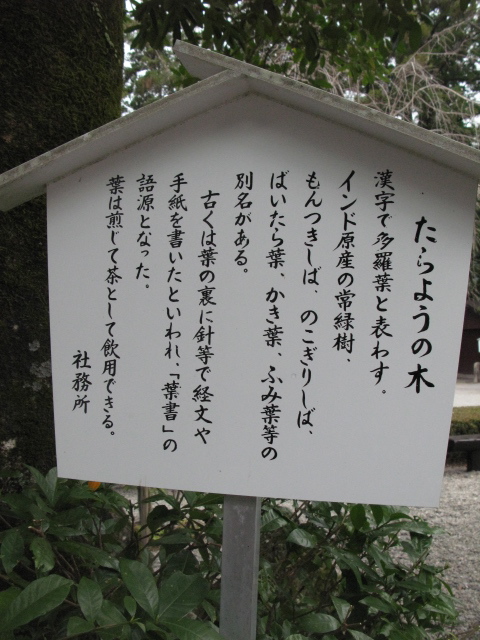 たらようの木
漢字で多羅葉と表わす。
インド原産の常緑樹、
もんつきしば、のこぎりしば、
ばいたら葉、かき葉、ふみ葉等の
別名がある。
古くは葉の裏に針等で経文や
手紙を書いたといわれ、「葉書」の
語源となった。
葉は煎じて茶として飲用できる。
社務所